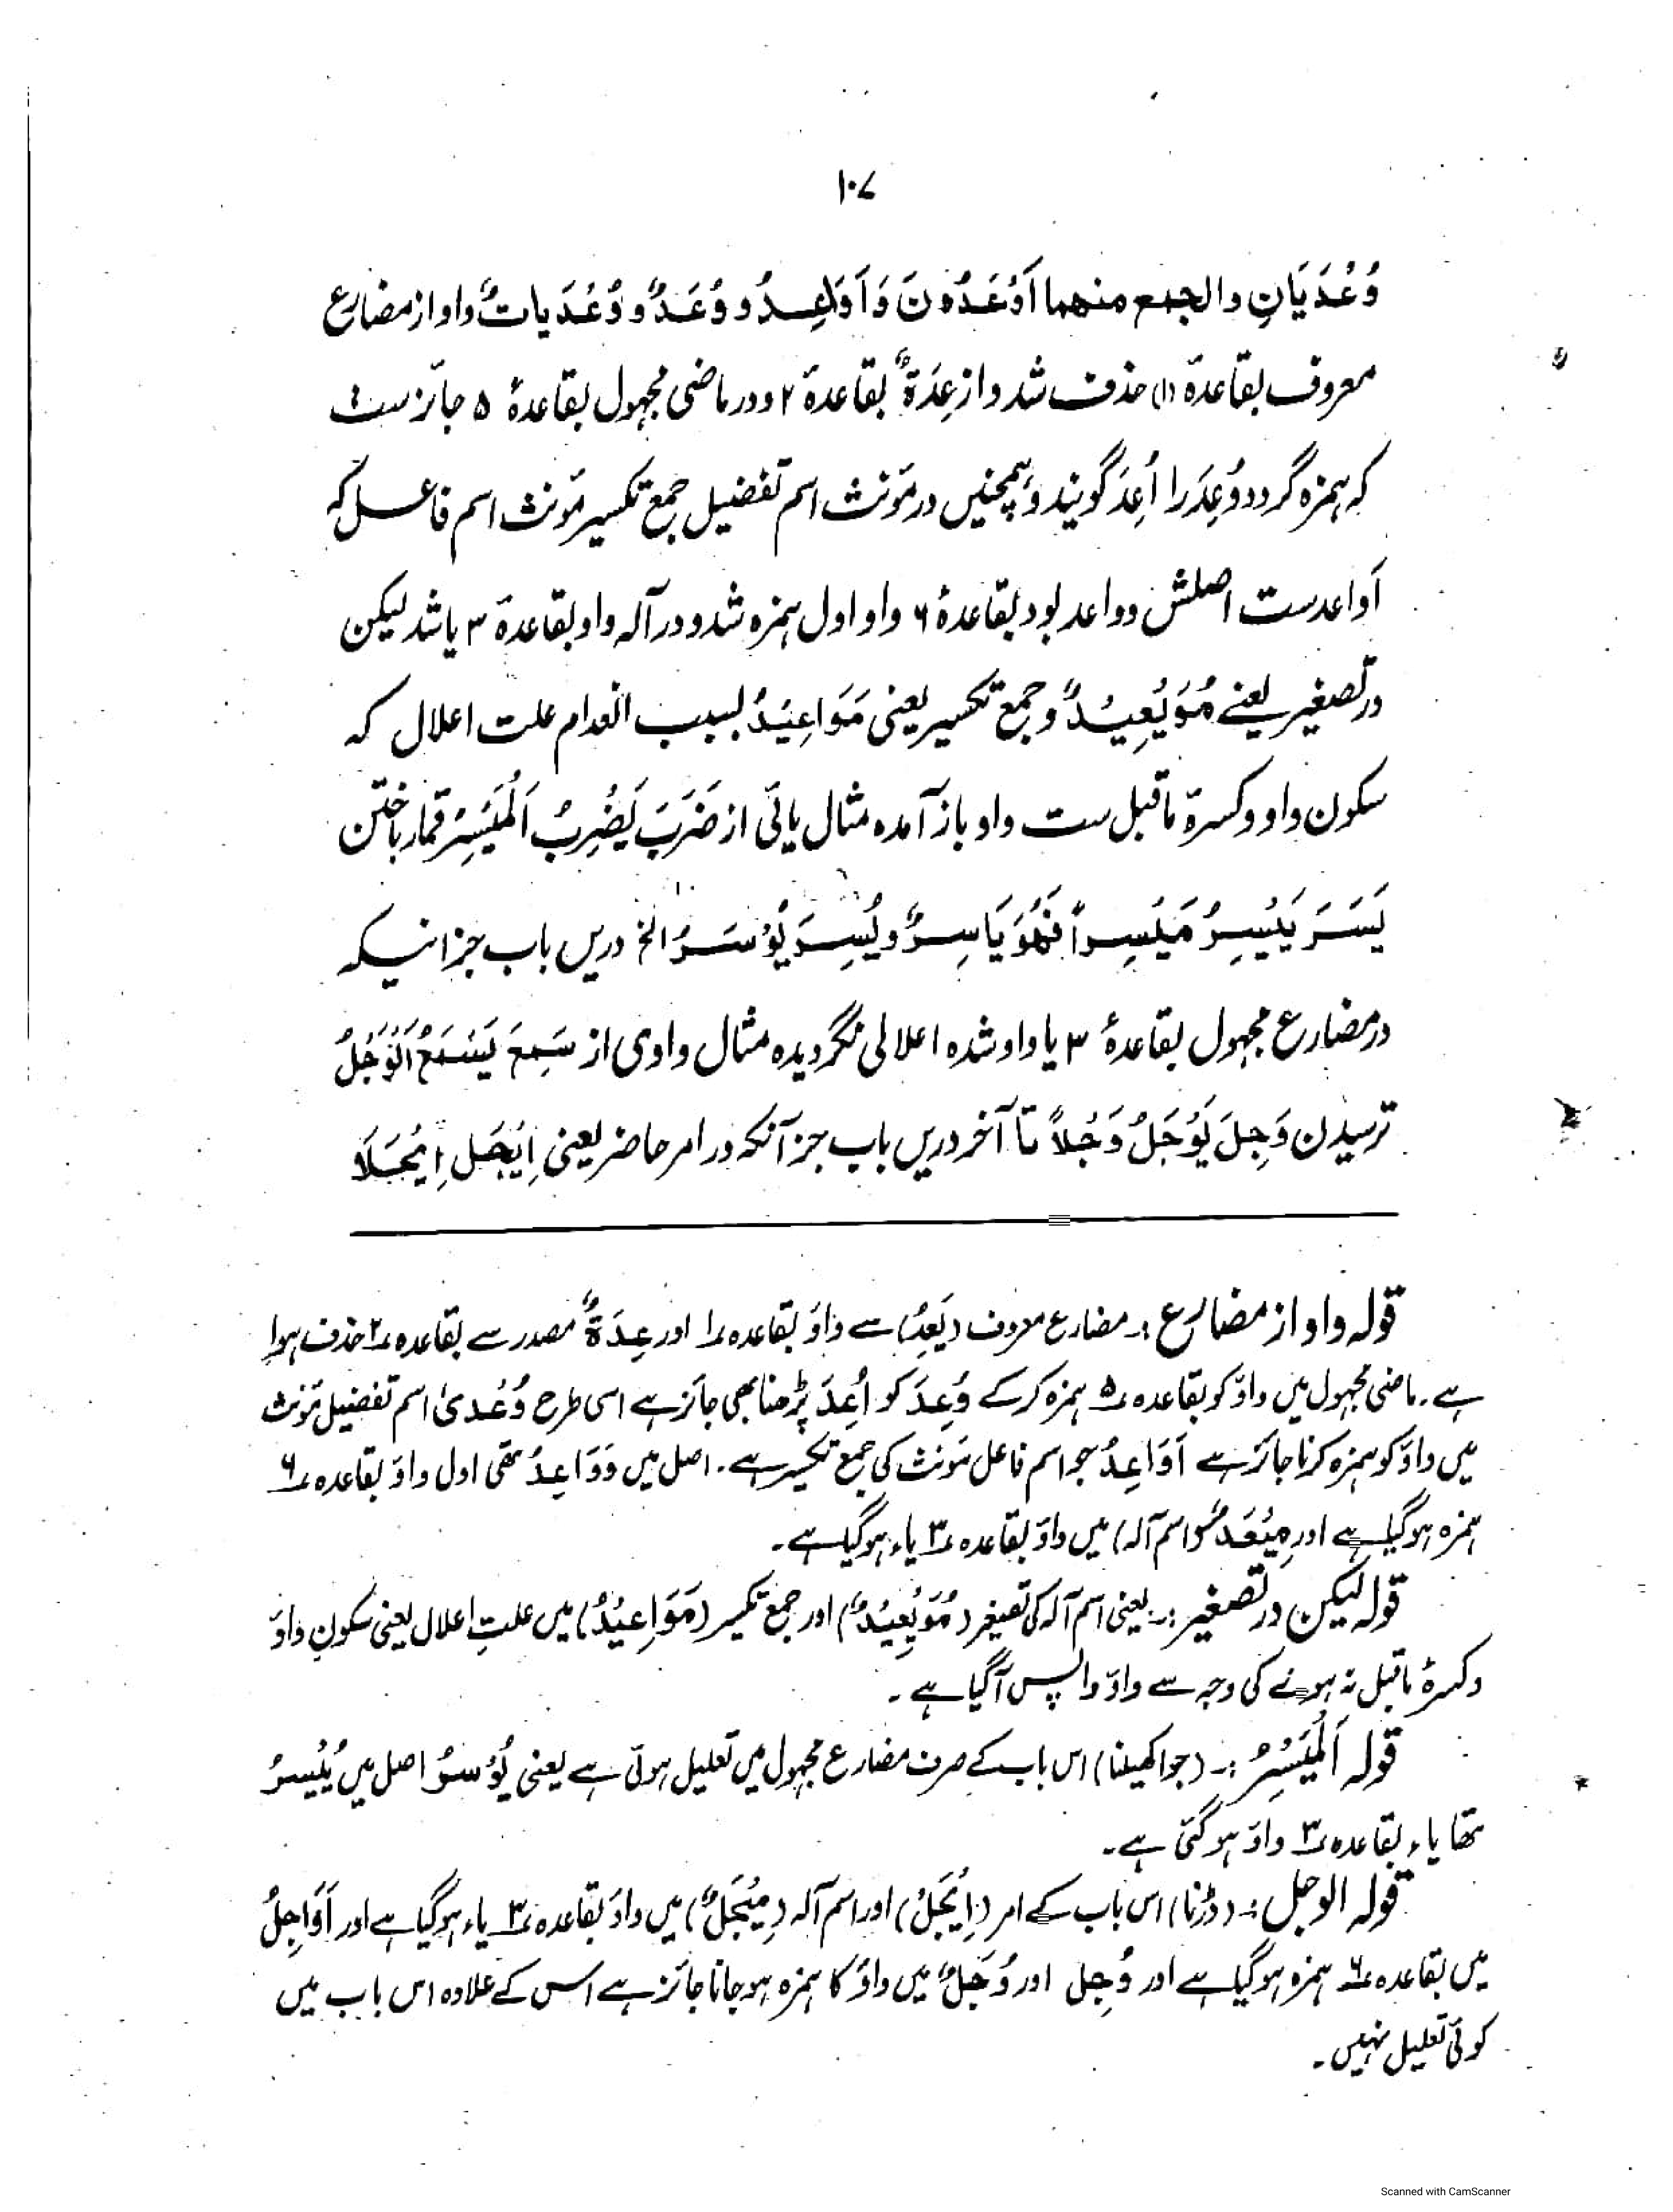 ۱۰۷
وُعْدَيَانِ والجمع منهما اَوْعَدُوْنَ وَاَوَاعِدُ و وُعَدٌ و وُعْدَيَاتٌ واو از مضارع
معروف بقاعدۂ (۱) حذف شد و از عِدَۃٌ بقاعدۂ ۲ و در ماضی مجہول بقاعدۂ ۵ جائزست
کہ ہمزہ گردد وُعِدَ را اُعِدَ گویند و ہمچنیں در مؤنث اسم تفضیل جمع تکسیر مؤنث اسم فاعل کہ
اَواعدست اصلش وواعد بود بقاعدۂ ۶ واو اول ہمزہ شد و در آلہ واو بقاعدۂ ۳ یا شد لیکن
در تصغیر یعنے مُوَيْعِيْدٌ و جمع تکسیر یعنی مَوَاعِيْدُ بسبب انعدام علت اعلال کہ
سکون واو و کسرۂ ماقبل ست واو باز آمدہ مثال یائی از ضَرَبَ يَضْرِبُ اَلْمَيْسِرُ قمار باختن
يَسَرَ يَيْسِرُ مَيْسِراً فَهُوَ يَاسِرٌ و يُسِرَ يُوْسَرُ الخ دریں باب جز اینکہ
در مضارع مجہول بقاعدۂ ۳ یا واو شدہ اعلالی نگردیدہ مثال واوی از سَمِعَ يَسْمَعُ اَلْوَجَلُ
ترسیدن وَجِلَ يَوْجَلُ وَجْلاً تا آخر دریں باب جز آنکہ در امر حاضر یعنی اِيْجَلْ اِيْجَلَا
قولہ واو از مضارع :۔ مضارع معروف (يَعِدُ) سے واؤ بقاعدہ ۱ اور عِدَۃٌ مصدر سے بقاعدہ ۲ حذف ہوا
ہے۔ ماضی مجہول میں واؤ کو بقاعدہ ۵ ہمزہ کرکے وُعِدَ کو اُعِدَ پڑھنا بھی جائز ہے اسی طرح وُعْدیٰ اسم تفضیل مؤنث
میں واؤ کو ہمزہ کرنا جائز ہے اَوَاعِدُ جو اسم فاعل مؤنث کی جمع تکسیر ہے۔ اصل میں وَوَاعِدُ تھی اول واؤ بقاعدہ ۶
ہمزہ ہوگیا ہے اور مِيْعَدٌ (اسم آلہ) میں واؤ بقاعدہ ۳ یاء ہوگیا ہے۔
قولہ لیکن در تصغیر :۔ یعنی اسم آلہ کی تصغیر (مُوَيْعِيْدٌ) اور جمع تکسیر (مَوَاعِيْدُ) میں علتِ اعلال یعنی سکونِ واؤ
وکسرۂ ماقبل نہ ہونے کی وجہ سے واؤ واپس آگیا ہے۔
قولہ اَلْمَيْسِرُ :۔ (جوا کھیلنا) اس باب کے صرف مضارع مجہول میں تعلیل ہوئی ہے یعنی يُوْسَرُ اصل میں يُيْسَرُ
تھا یاء بقاعدہ ۳ واؤ ہوگئی ہے۔
قولہ الوجل :۔ (ڈرنا) اس باب کے امر (اِيْجَلْ) اور اسم آلہ (مِيْجَلٌ) میں واؤ بقاعدہ ۳ یاء ہوگیا ہے اور اَوَاجِلُ
میں بقاعدہ ۶ ہمزہ ہوگیا ہے اور وُجِل اور وُجَلٌ میں واؤ کا ہمزہ ہوجانا جائز ہے اس کے علاوہ اس باب میں
کوئی تعلیل نہیں۔
Scanned with CamScanner